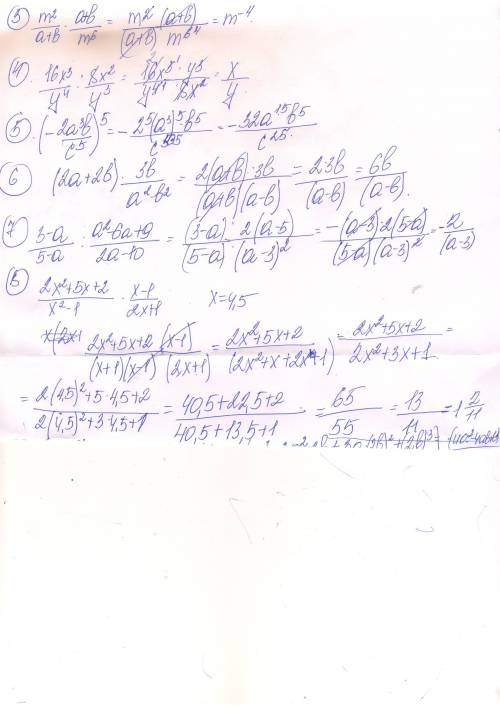 ③ m²/(a+b) · (a+b)/m⁶ = m²(a+b)/((a+b) m⁶⁴) = m⁻⁴.
④ 16x³/y⁴ : 8x²/y³ = 16x³ · y³/(y⁴ · 8x²) = x/y
⑤ (−2a³b/c⁵)⁵ = −2⁵(a³)⁵b⁵/c²⁵ = −32a¹⁵b⁵/c²⁵
⑥ (2a+2b) · 3b/(a²−b²) = 2(a+b)·3b/((a+b)(a−b)) = 2·3b/(a−b) = 6b/(a−b).
⑦ (3−a)/(5−a) : (a²−6a+9)/(2a−10) = (3−a)·2(a−5)/((5−a)·(a−3)²) = −(a−3)·2(5−a)/((5−a)(a−3)²) = −2/(a−3)
⑧
(2x²+5x+2)/(x²−1) · (x−1)/(2x+1) x=4,5
x(2x+ (2x²+5x+2 (x−1))/((x+1)(x−1)(2x+1)) = (2x²+5x+2)/(2x²+x+2x+1) = (2x²+5x+2)/(2x²+3x+1) =
= (2(4,5)²+5·4,5+2)/(2(4,5)²+3·4,5+1) = (40,5+22,5+2)/(40,5+13,5+1) = 65/55 = 13/11 = 1 2/11